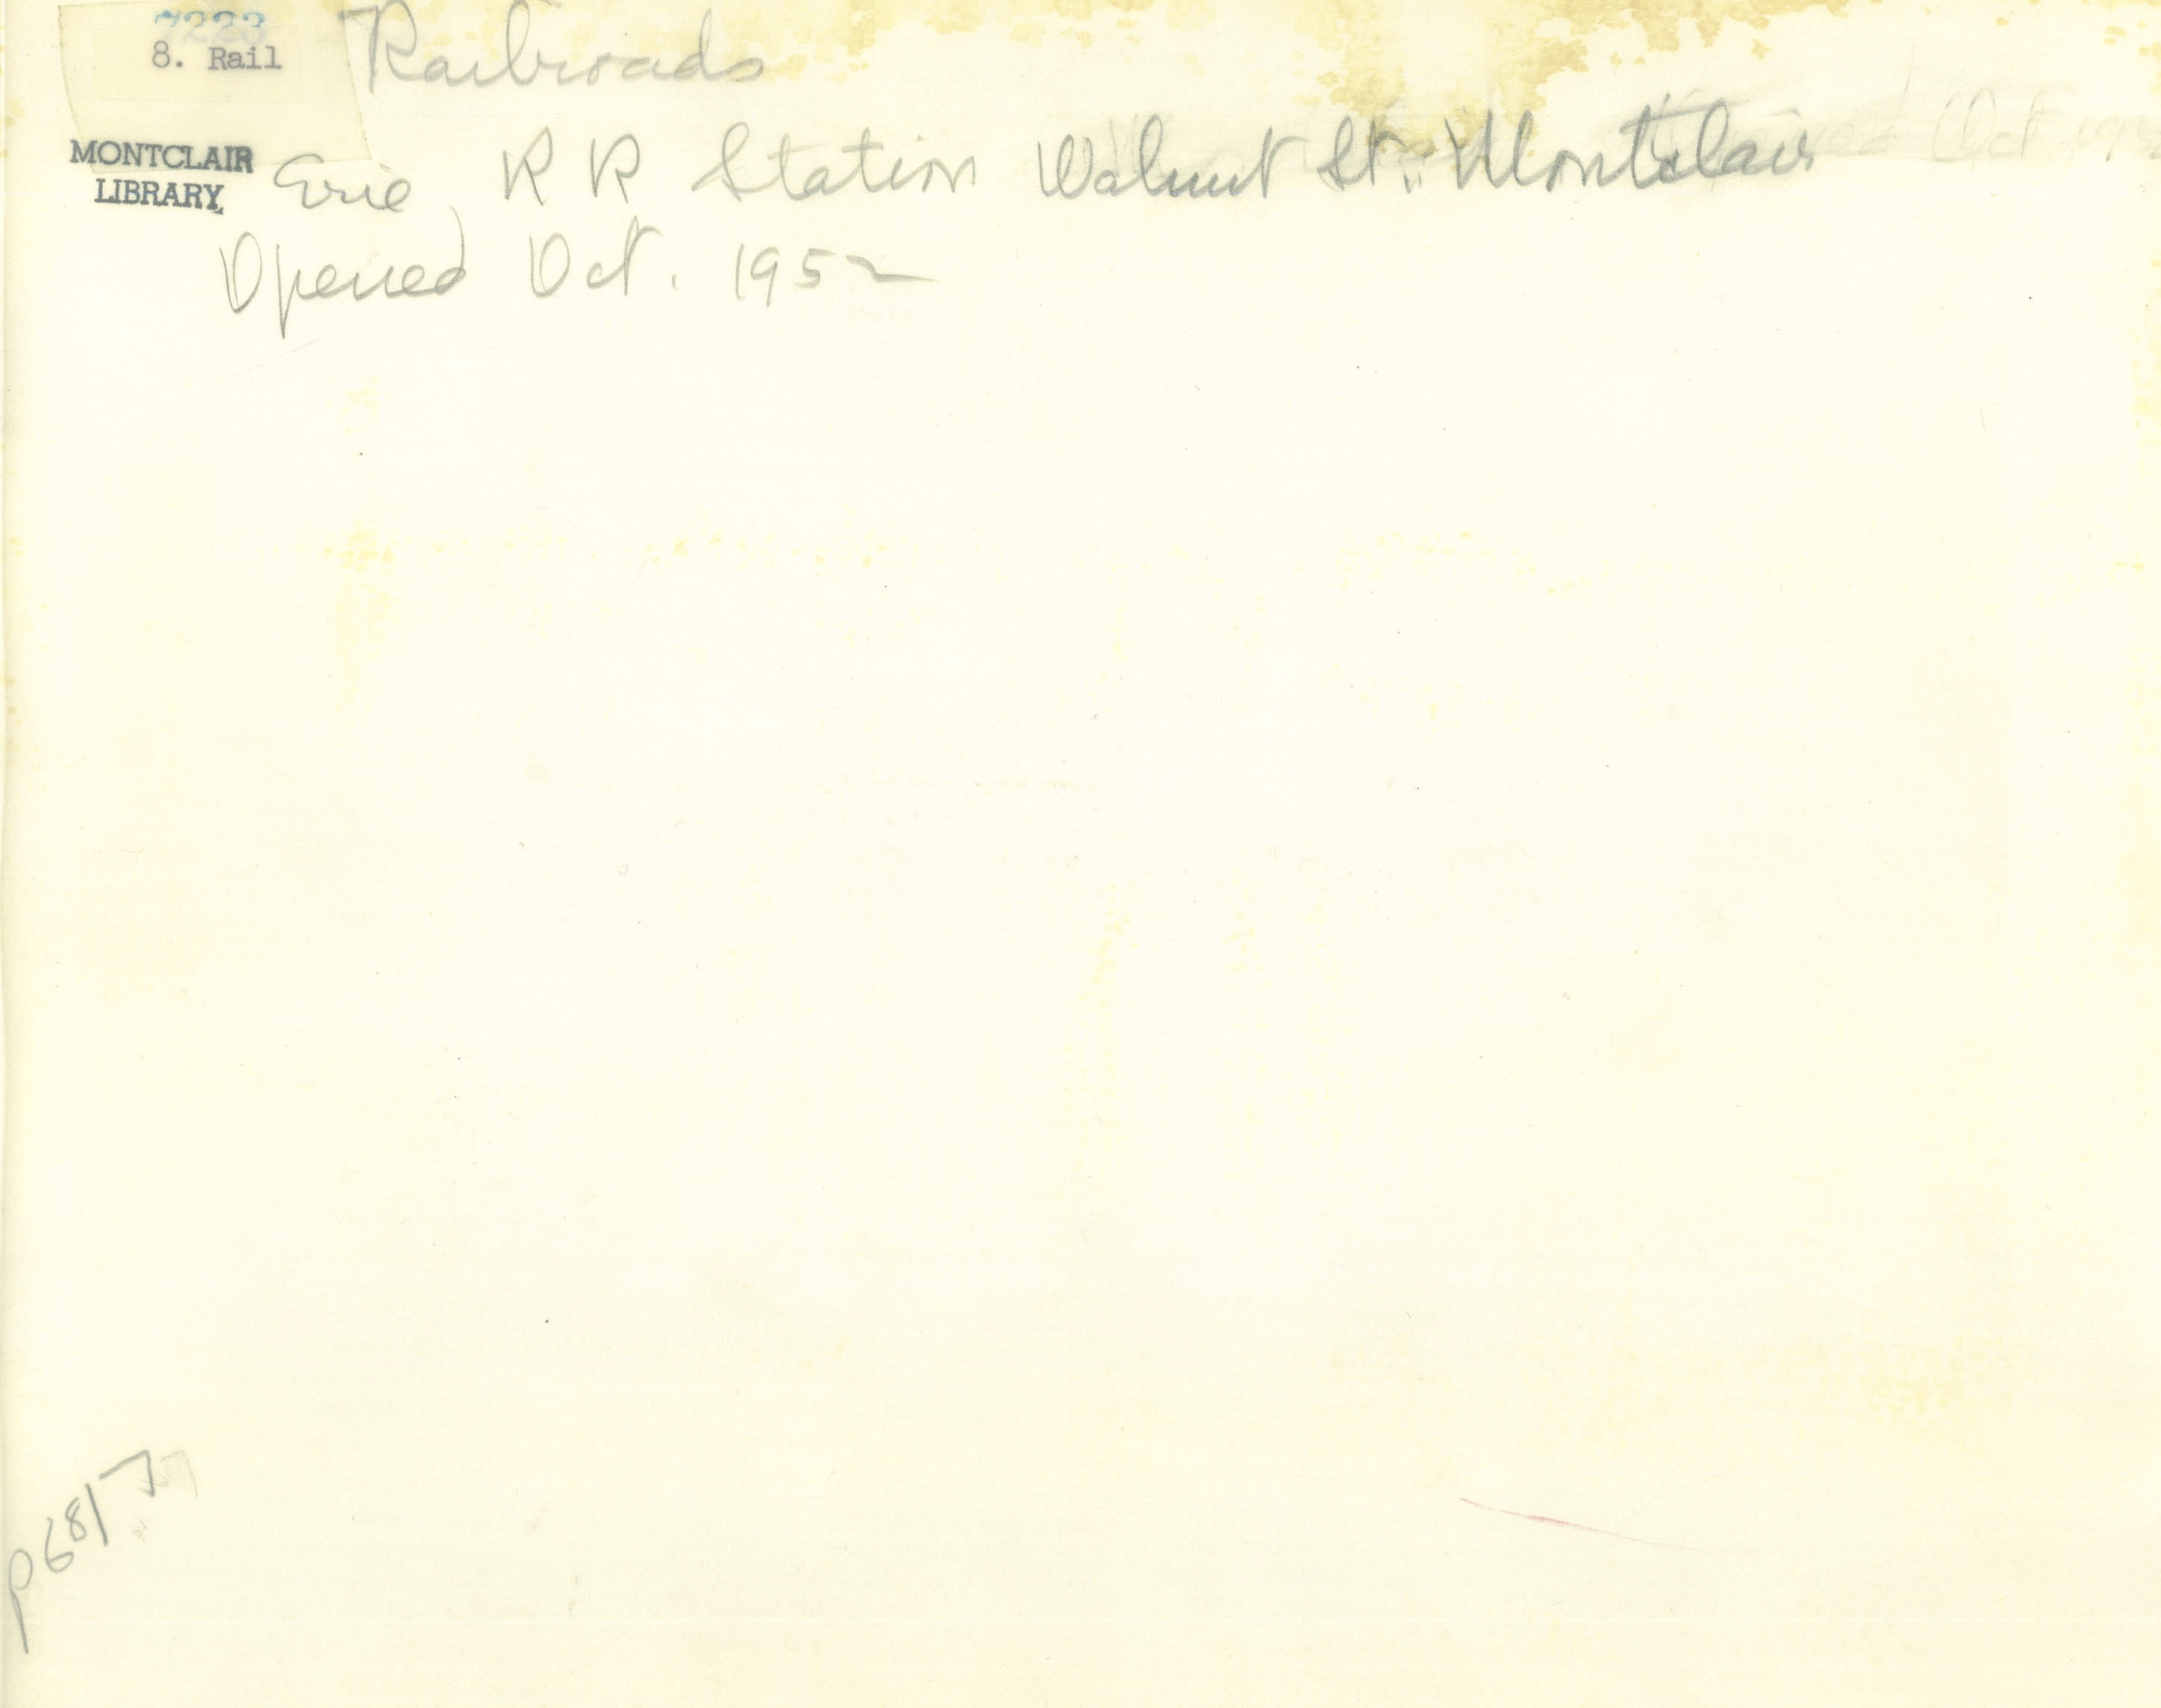 7223
8. Rail
Railroads
MONTCLAIR
LIBRARY
Erie R R Station Walnut St. Montclair
Opened Oct. 1952
p6817